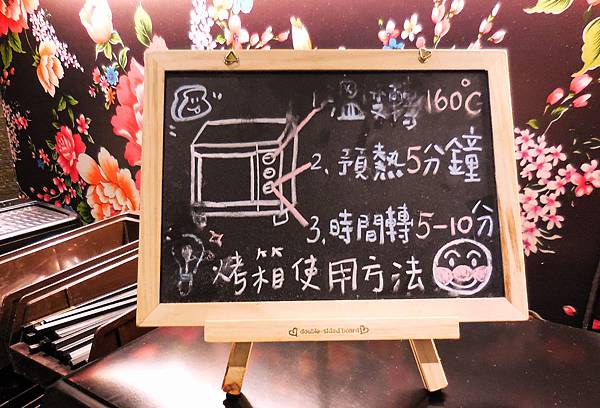 1. 溫度轉 160°C
2. 預熱5分鐘
3. 時間轉5-10分
烤箱使用方法
double-sided board